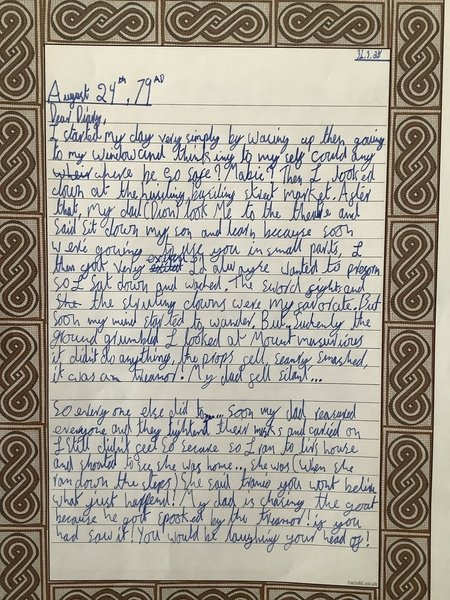 August 24th, 79AD
Dear Diary,
I started my day very simply by waring up then going
to my window and thinking to my self could any
where be so safe? Mabie? Then I looked
down at the
street market. After
that, my dad (Dion) took me to the theatre and
said sit down my son and learn because soon
were gowing to use you in small parts. I
then got very
I always wanted to preform
so I sat down and wached. The sword fights and
the
clowns were my favorate. But
soon my mind started to wander. But
the
ground grumbled I looked at Mount
it didn't do anything. the props fell, seanry smashed,
it was an treamor! My dad fell silent...
So every one else did to... Soon my dad
everyone and they
their masks and caried on
I still didn't feel so
so I ran to livs house
and shouted to see she was home... She was (when she
ran down the steps) She said
you wont belive
what just happend! My dad is chasing the goat
because he got spooked by the treamor! if you
had saw it! You would be laughing your head of!
twinkl.co.uk